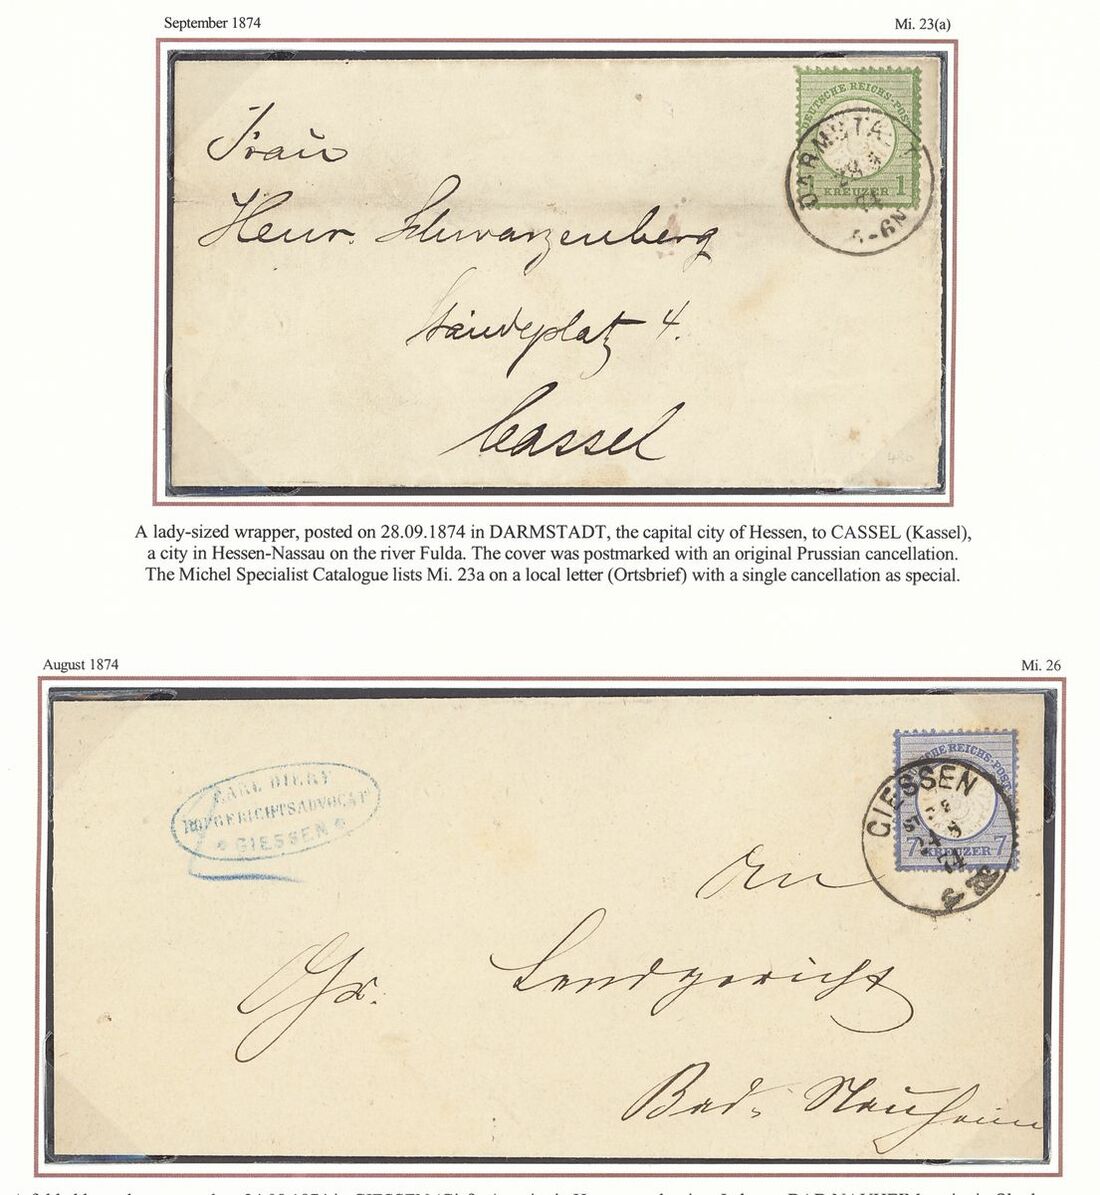 September 1874
Mi. 23(a)
DEUTSCHE REICHS-POST
1 KREUZER 1
DARMSTADT
5-6N
Frau
Henr. Schwarzenberg
Ständeplatz 4.
Cassel
480
A lady-sized wrapper, posted on 28.09.1874 in DARMSTADT, the capital city of Hessen, to CASSEL (Kassel),
a city in Hessen-Nassau on the river Fulda. The cover was postmarked with an original Prussian cancellation.
The Michel Specialist Catalogue lists Mi. 23a on a local letter (Ortsbrief) with a single cancellation as special.
August 1874
Mi. 26
DEUTSCHE REICHS-POST
7 KREUZER 7
GIESSEN
CARL DIERY
HOFGERICHTSADVOCAT
* GIESSEN *
An
Gr. Landgericht
Bad-Nauheim